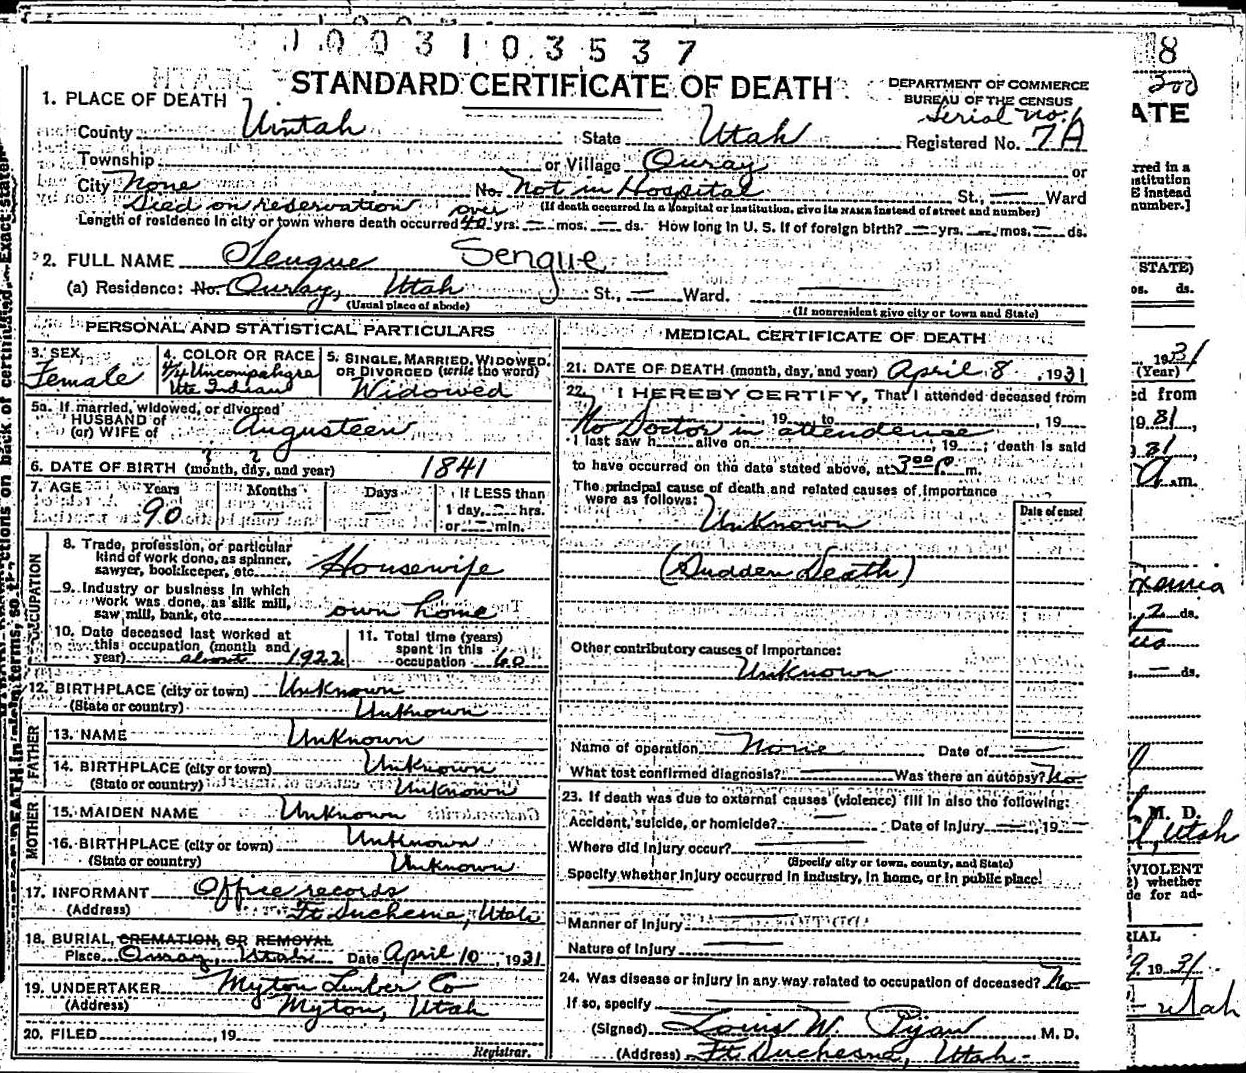 1003103537
STANDARD CERTIFICATE OF DEATH
DEPARTMENT OF COMMERCE
BUREAU OF THE CENSUS
1. PLACE OF DEATH
Serial No.
County Uintah State Utah Registered No. 7A
Township or Village Ouray or
City None No. Not in Hospital St., — Ward
Died on reservation (If death occurred in a hospital or institution, give its NAME instead of street and number)
Length of residence in city or town where death occurred over 40 yrs. — mos. — ds. How long in U. S. if of foreign birth? — yrs. — mos. — ds.
2. FULL NAME Sengue Sengue
(a) Residence: No. Ouray, Utah St., — Ward.
(Usual place of abode) (If nonresident give city or town and State)
PERSONAL AND STATISTICAL PARTICULARS
3. SEX Female
4. COLOR OR RACE 4/4 Uncompahgre Ute Indian
5. SINGLE, MARRIED, WIDOWED, OR DIVORCED (write the word) Widowed
5a. If married, widowed, or divorced
HUSBAND of
(or) WIFE of Augusteen
6. DATE OF BIRTH (month, day, and year) 3 2 1841
7. AGE Years 90 Months — Days — If LESS than
1 day, — hrs.
or — min.
OCCUPATION
8. Trade, profession, or particular
kind of work done, as spinner,
sawyer, bookkeeper, etc. Housewife
9. Industry or business in which
work was done, as silk mill,
saw mill, bank, etc. own home
10. Date deceased last worked at
this occupation (month and
year) about 1922
11. Total time (years)
spent in this
occupation 60
12. BIRTHPLACE (city or town) Unknown
(State or country) Unknown
FATHER
13. NAME Unknown
14. BIRTHPLACE (city or town) Unknown
(State or country) Unknown
MOTHER
15. MAIDEN NAME Unknown
16. BIRTHPLACE (city or town) Unknown
(State or country) Unknown
17. INFORMANT Office records
(Address) Ft. Duchesne, Utah
18. BURIAL, CREMATION, OR REMOVAL
Place Ouray, Utah Date April 10, 1931
19. UNDERTAKER Myton Lumber Co
(Address) Myton, Utah
20. FILED , 19
Registrar.
MEDICAL CERTIFICATE OF DEATH
21. DATE OF DEATH (month, day, and year) April 8, 1931
22. I HEREBY CERTIFY, That I attended deceased from
, 19 to , 19
No Doctor in attendense
I last saw h alive on , 19 ; death is said
to have occurred on the date stated above, at 3:00 P. m.
The principal cause of death and related causes of importance
were as follows:
Date of onset
Unknown
(Sudden Death)
Other contributory causes of importance:
Unknown
Name of operation None Date of —
What test confirmed diagnosis? — Was there an autopsy? No
23. If death was due to external causes (violence) fill in also the following:
Accident, suicide, or homicide? — Date of injury — , 19 —
Where did injury occur? —
(Specify city or town, county, and State)
Specify whether injury occurred in industry, in home, or in public place.
Manner of injury —
Nature of injury —
24. Was disease or injury in any way related to occupation of deceased? No
If so, specify —
(Signed) Louis W. M. D.
(Address) Ft. Duchesne, Utah
8
ATE
rred in a
nstitution
E instead
number.]
STATE)
os. ds.
1931
(Year)
ed from
1931,
31,
m.
2 ds.
— ds.
M. D.
Utah
VIOLENT
2) whether
de for ad-
RIAL
9, 1931
Utah